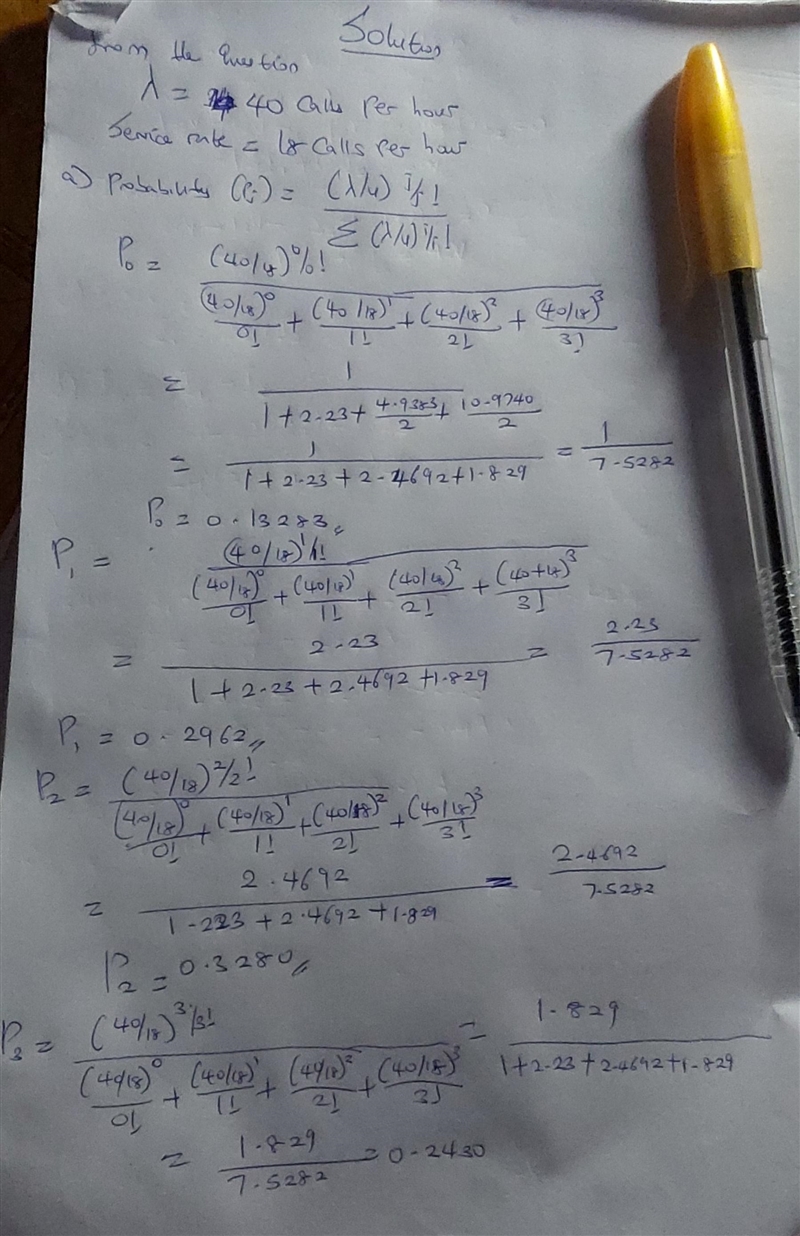 Solution
from the Question
λ = 40 Calls Per hour
Service rate = 18 Calls Per hour
a) Probability (Pi) = (λ/u) i/i! / Σ (λ/u) i/i!
P₀ = (40/18)⁰/0! / (40/18)⁰/0! + (40/18)¹/1! + (40/18)²/2! + (40/18)³/3!
= 1 / 1 + 2.23 + 4.9383/2 + 10.9740/2
= 1 / 1 + 2.23 + 2.4692 + 1.829 = 1 / 7.5282
P₀ = 0.13283,,
P₁ = (40/18)¹/1! / (40/18)⁰/0! + (40/18)¹/1! + (40/18)²/2! + (40+18)³/3!
= 2.23 / 1 + 2.23 + 2.4692 + 1.829 = 2.23 / 7.5282
P₁ = 0.2962,,
P₂ = (40/18)²/2! / (40/18)⁰/0! + (40/18)¹/1! + (40/18)²/2! + (40/18)³/3!
= 2.4692 / 1-223 + 2.4692 + 1.829 = 2.4692 / 7.5282
P₂ = 0.3280,,
P₃ = (40/18)³/3! / (40/18)⁰/0! + (40/18)¹/1! + (40/18)²/2! + (40/18)³/3! = 1.829 / 1 + 2.23 + 2.4692 + 1.829
= 1.829 / 7.5282 = 0.2430